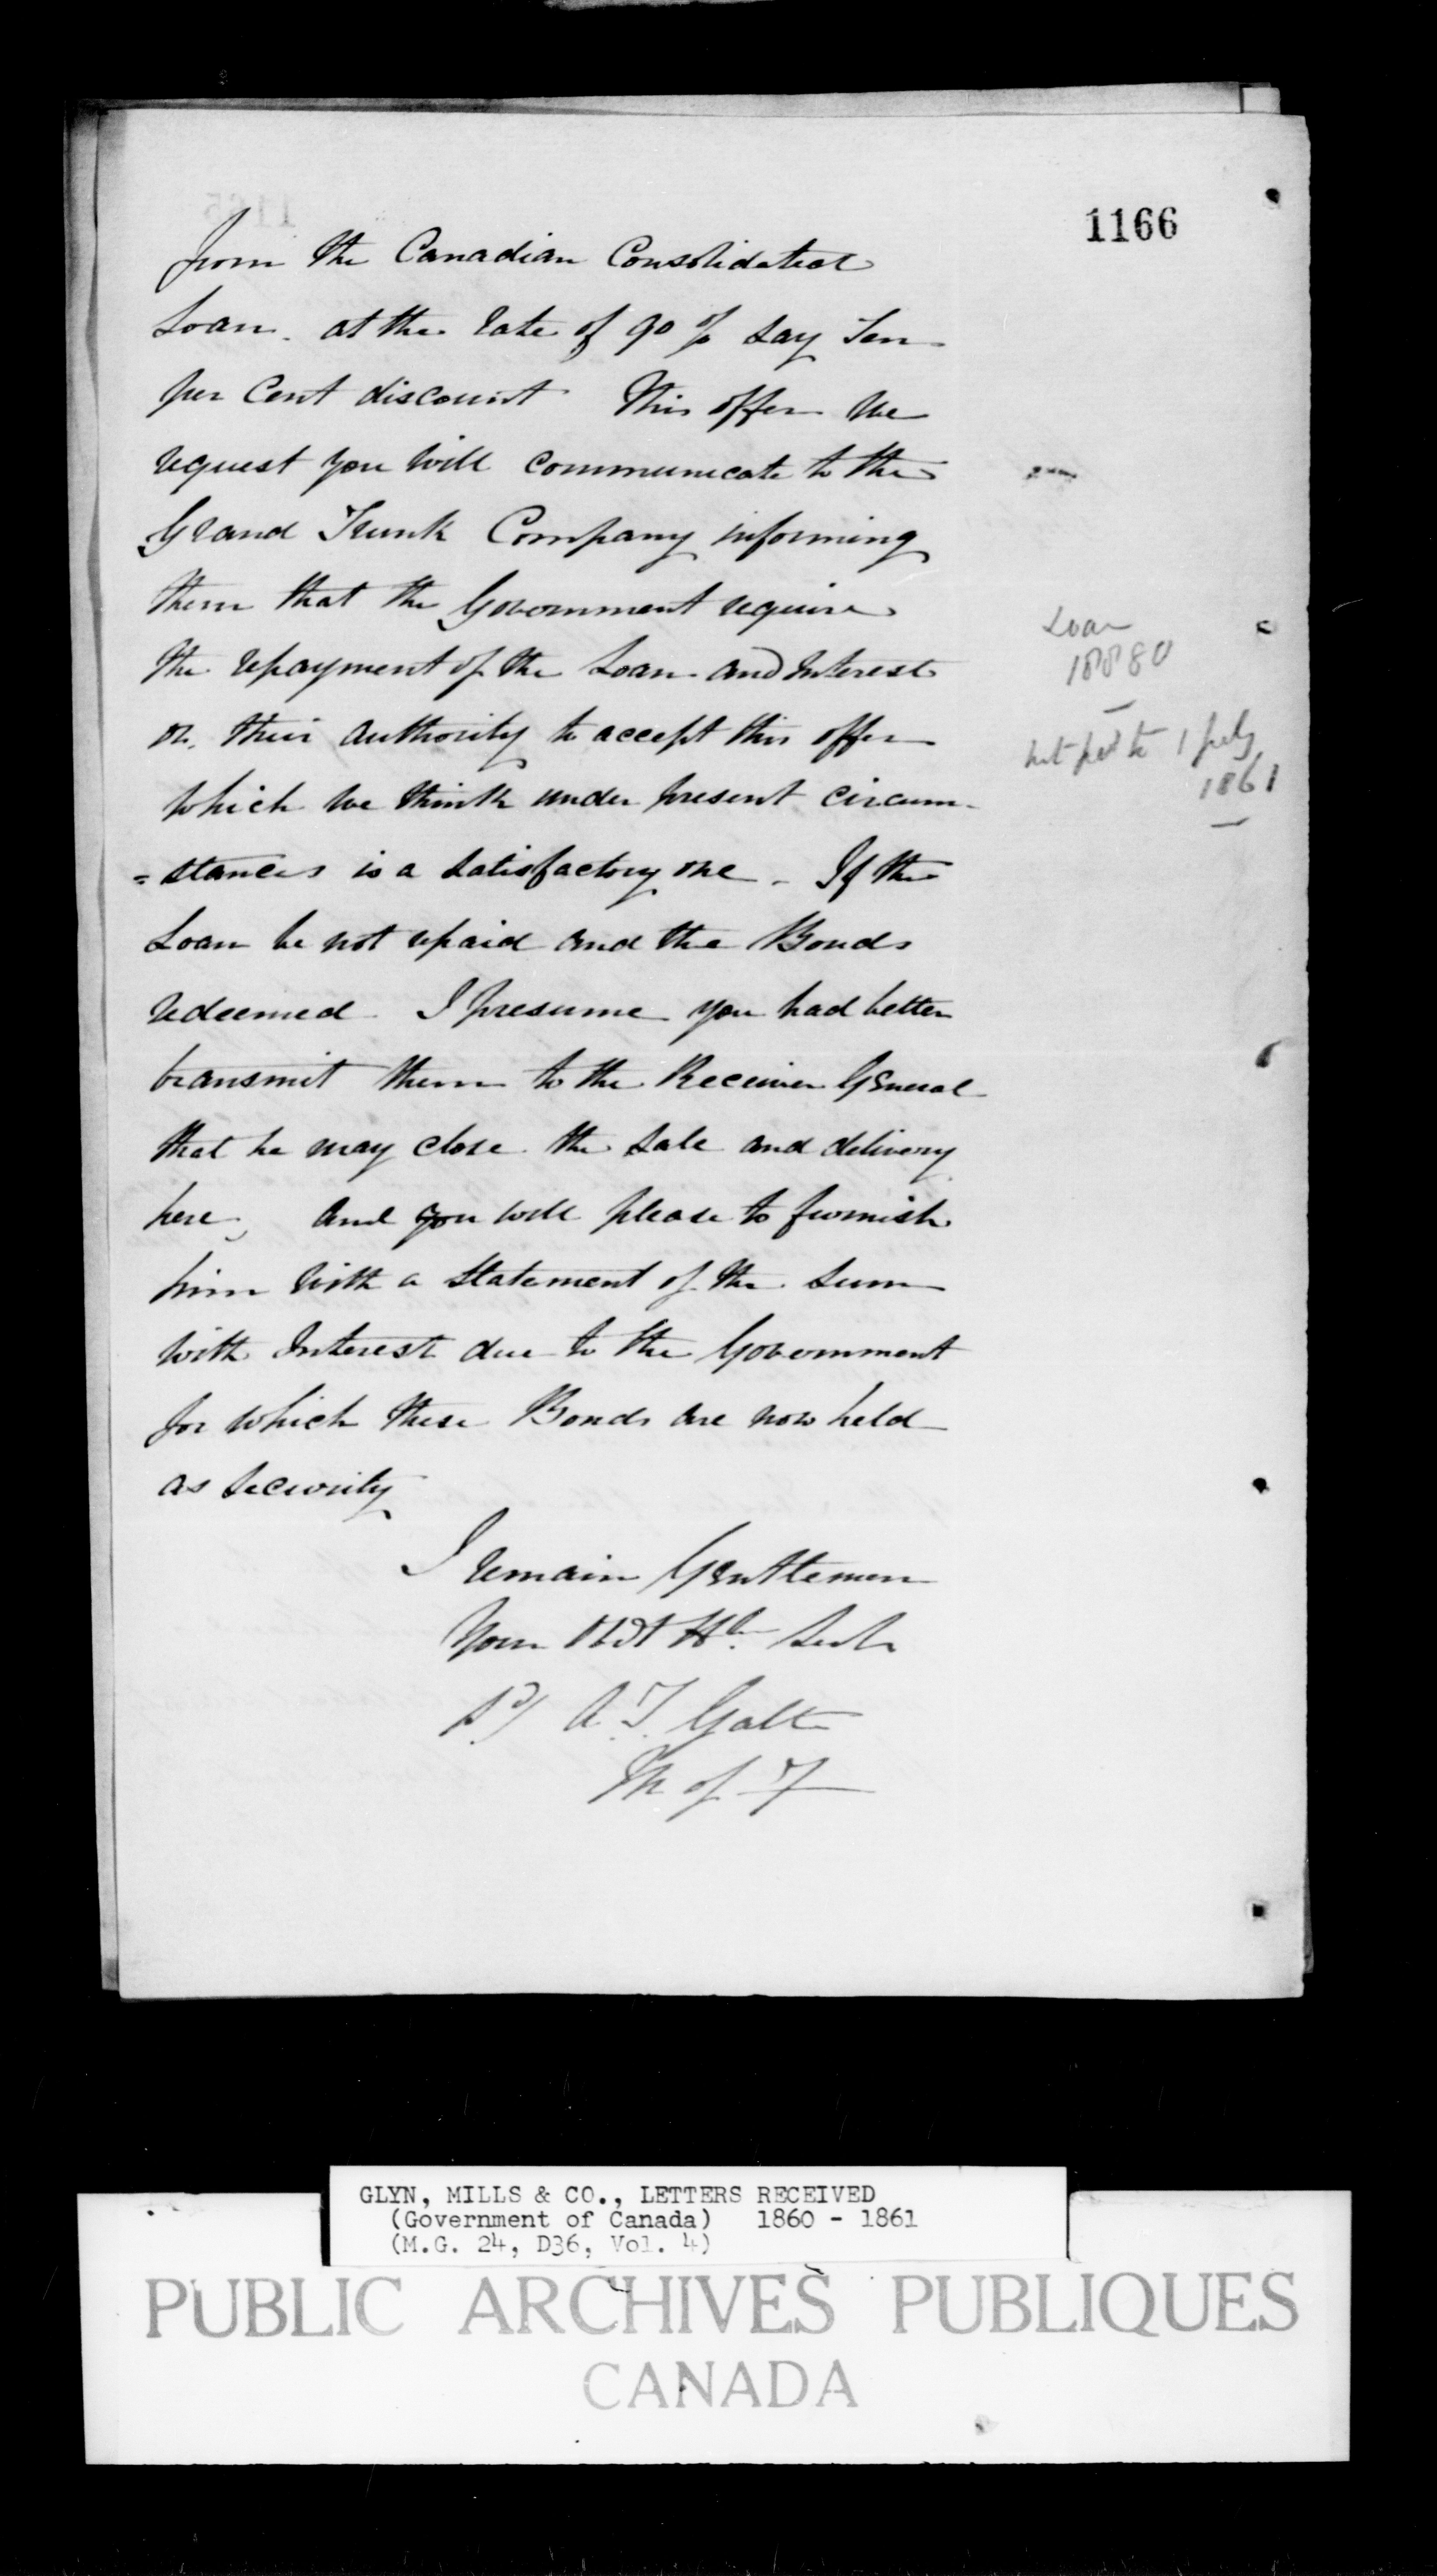 1166
from the Canadian Consolidated
Loan. at the rate of 90 % say Ten
per Cent discount This offer we
request you will communicate to the
Grand Trunk Company informing
them that the Government require
the repayment of the Loan and Interest
or, their authority to accept this offer
which we think under present circum-
=stances is a satisfactory one - If the
Loan be not repaid and the Bonds
redeemed I presume you had better
transmit them to the Receiver General
that he may close the sale and delivery
here, and you will please to furnish
him with a statement of the sum
with Interest due to the Government
for which these Bonds are now held
as security
I remain Gentlemen
Your Obdt Hle Servt
A. T. Galt
M of F
Loan
18880
Int pd to 1 July
1861
GLYN, MILLS & CO., LETTERS RECEIVED
(Government of Canada) 1860 - 1861
(M.G. 24, D36, Vol. 4)
PUBLIC ARCHIVES PUBLIQUES
CANADA